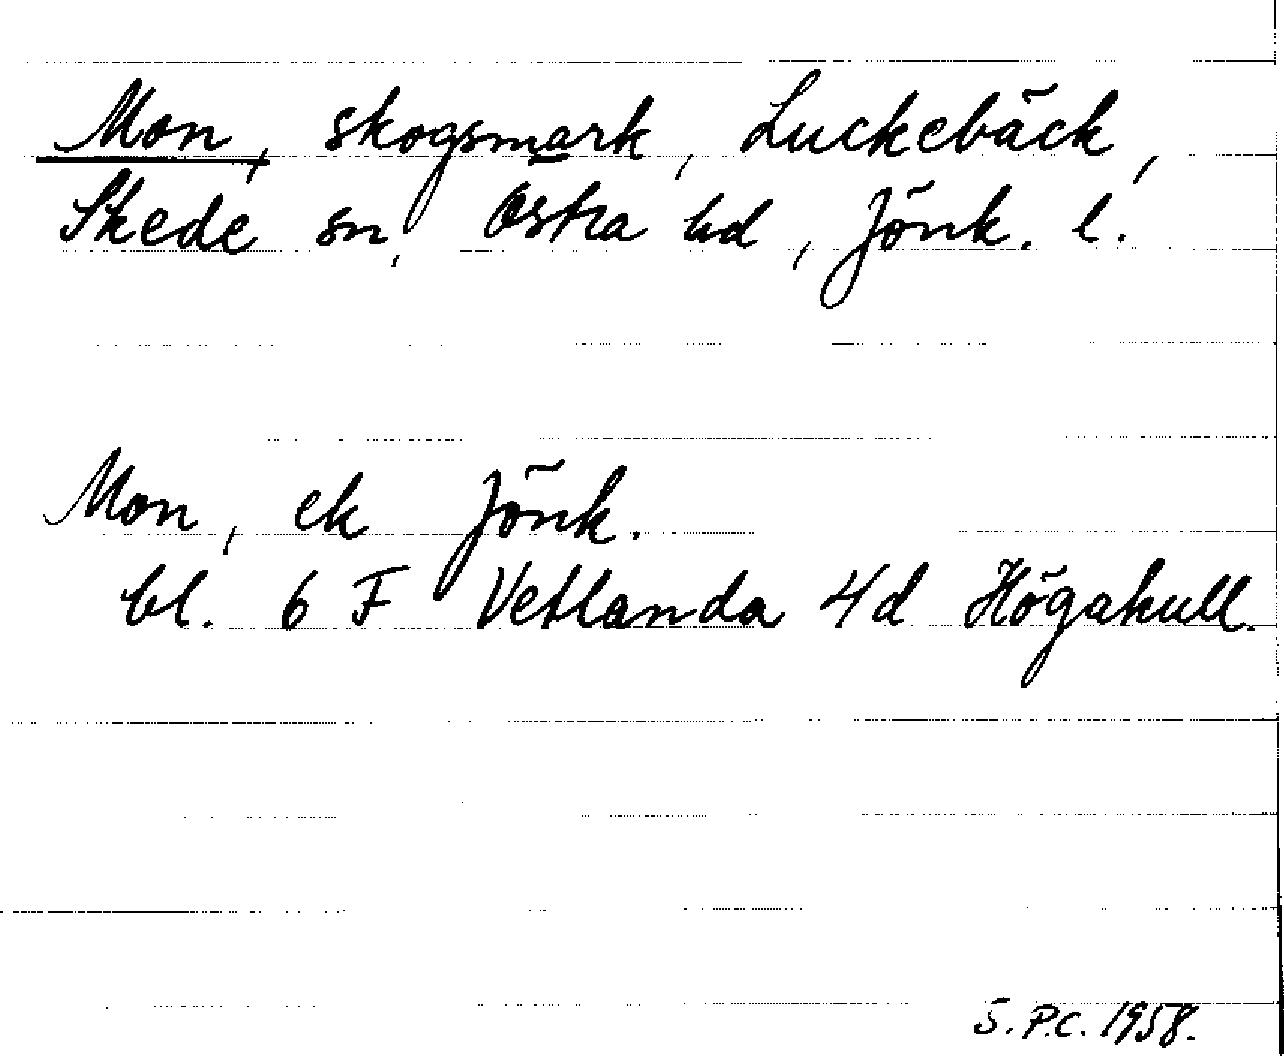 Mon, skogsmark, Luckebäck,
Skede sn, Östra hd, Jönk. l.
Mon, ek Jönk.
bl. 6 F Vetlanda 4d Högakull.
S.P.C. 1958.